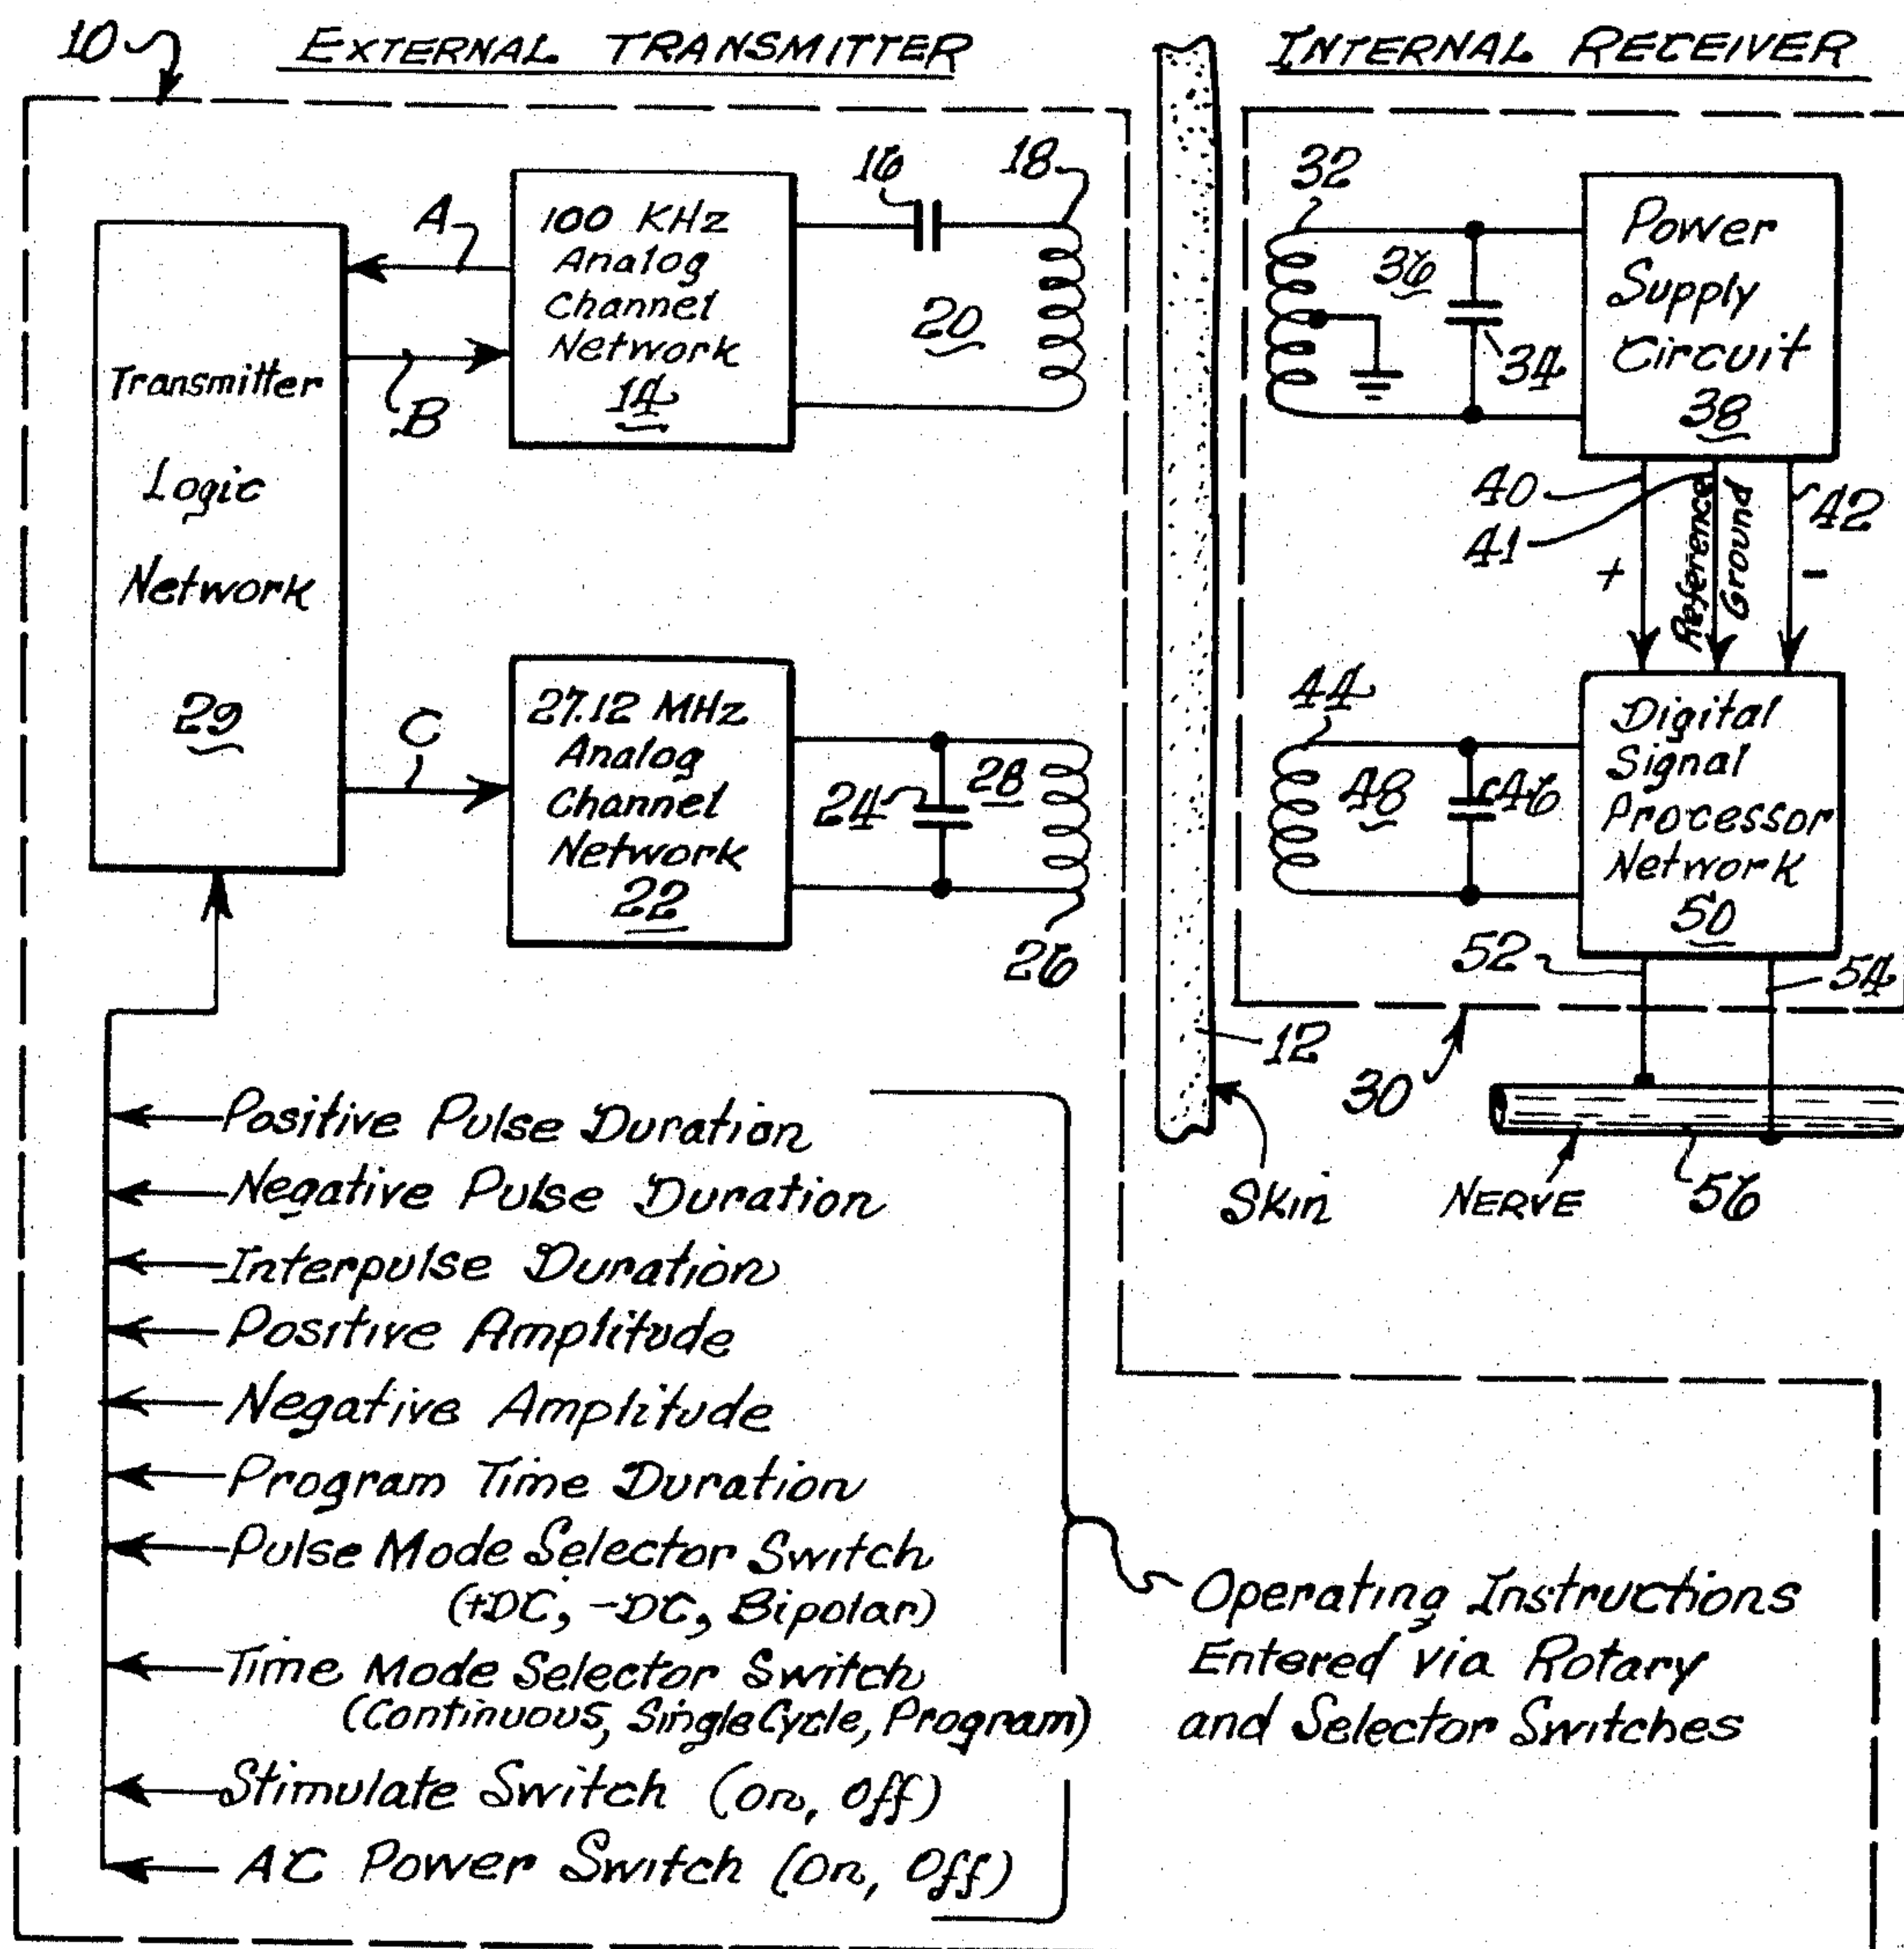 10
EXTERNAL TRANSMITTER
INTERNAL RECEIVER
Transmitter
Logic
Network
29
A
B
C
100 KHz
Analog
Channel
Network
14
16
18
20
27.12 MHz
Analog
Channel
Network
22
24
28
26
32
36
34
Power
Supply
Circuit
38
40
41
42
+
Reference
Ground
-
44
48
46
Digital
Signal
Processor
Network
50
52
54
12
30
Skin
NERVE
56
Positive Pulse Duration
Negative Pulse Duration
Interpulse Duration
Positive Amplitude
Negative Amplitude
Program Time Duration
Pulse Mode Selector Switch
(+DC, -DC, Bipolar)
Time Mode Selector Switch
(Continuous, Single Cycle, Program)
Stimulate Switch (On, Off)
AC Power Switch (On, Off)
Operating Instructions
Entered via Rotary
and Selector Switches